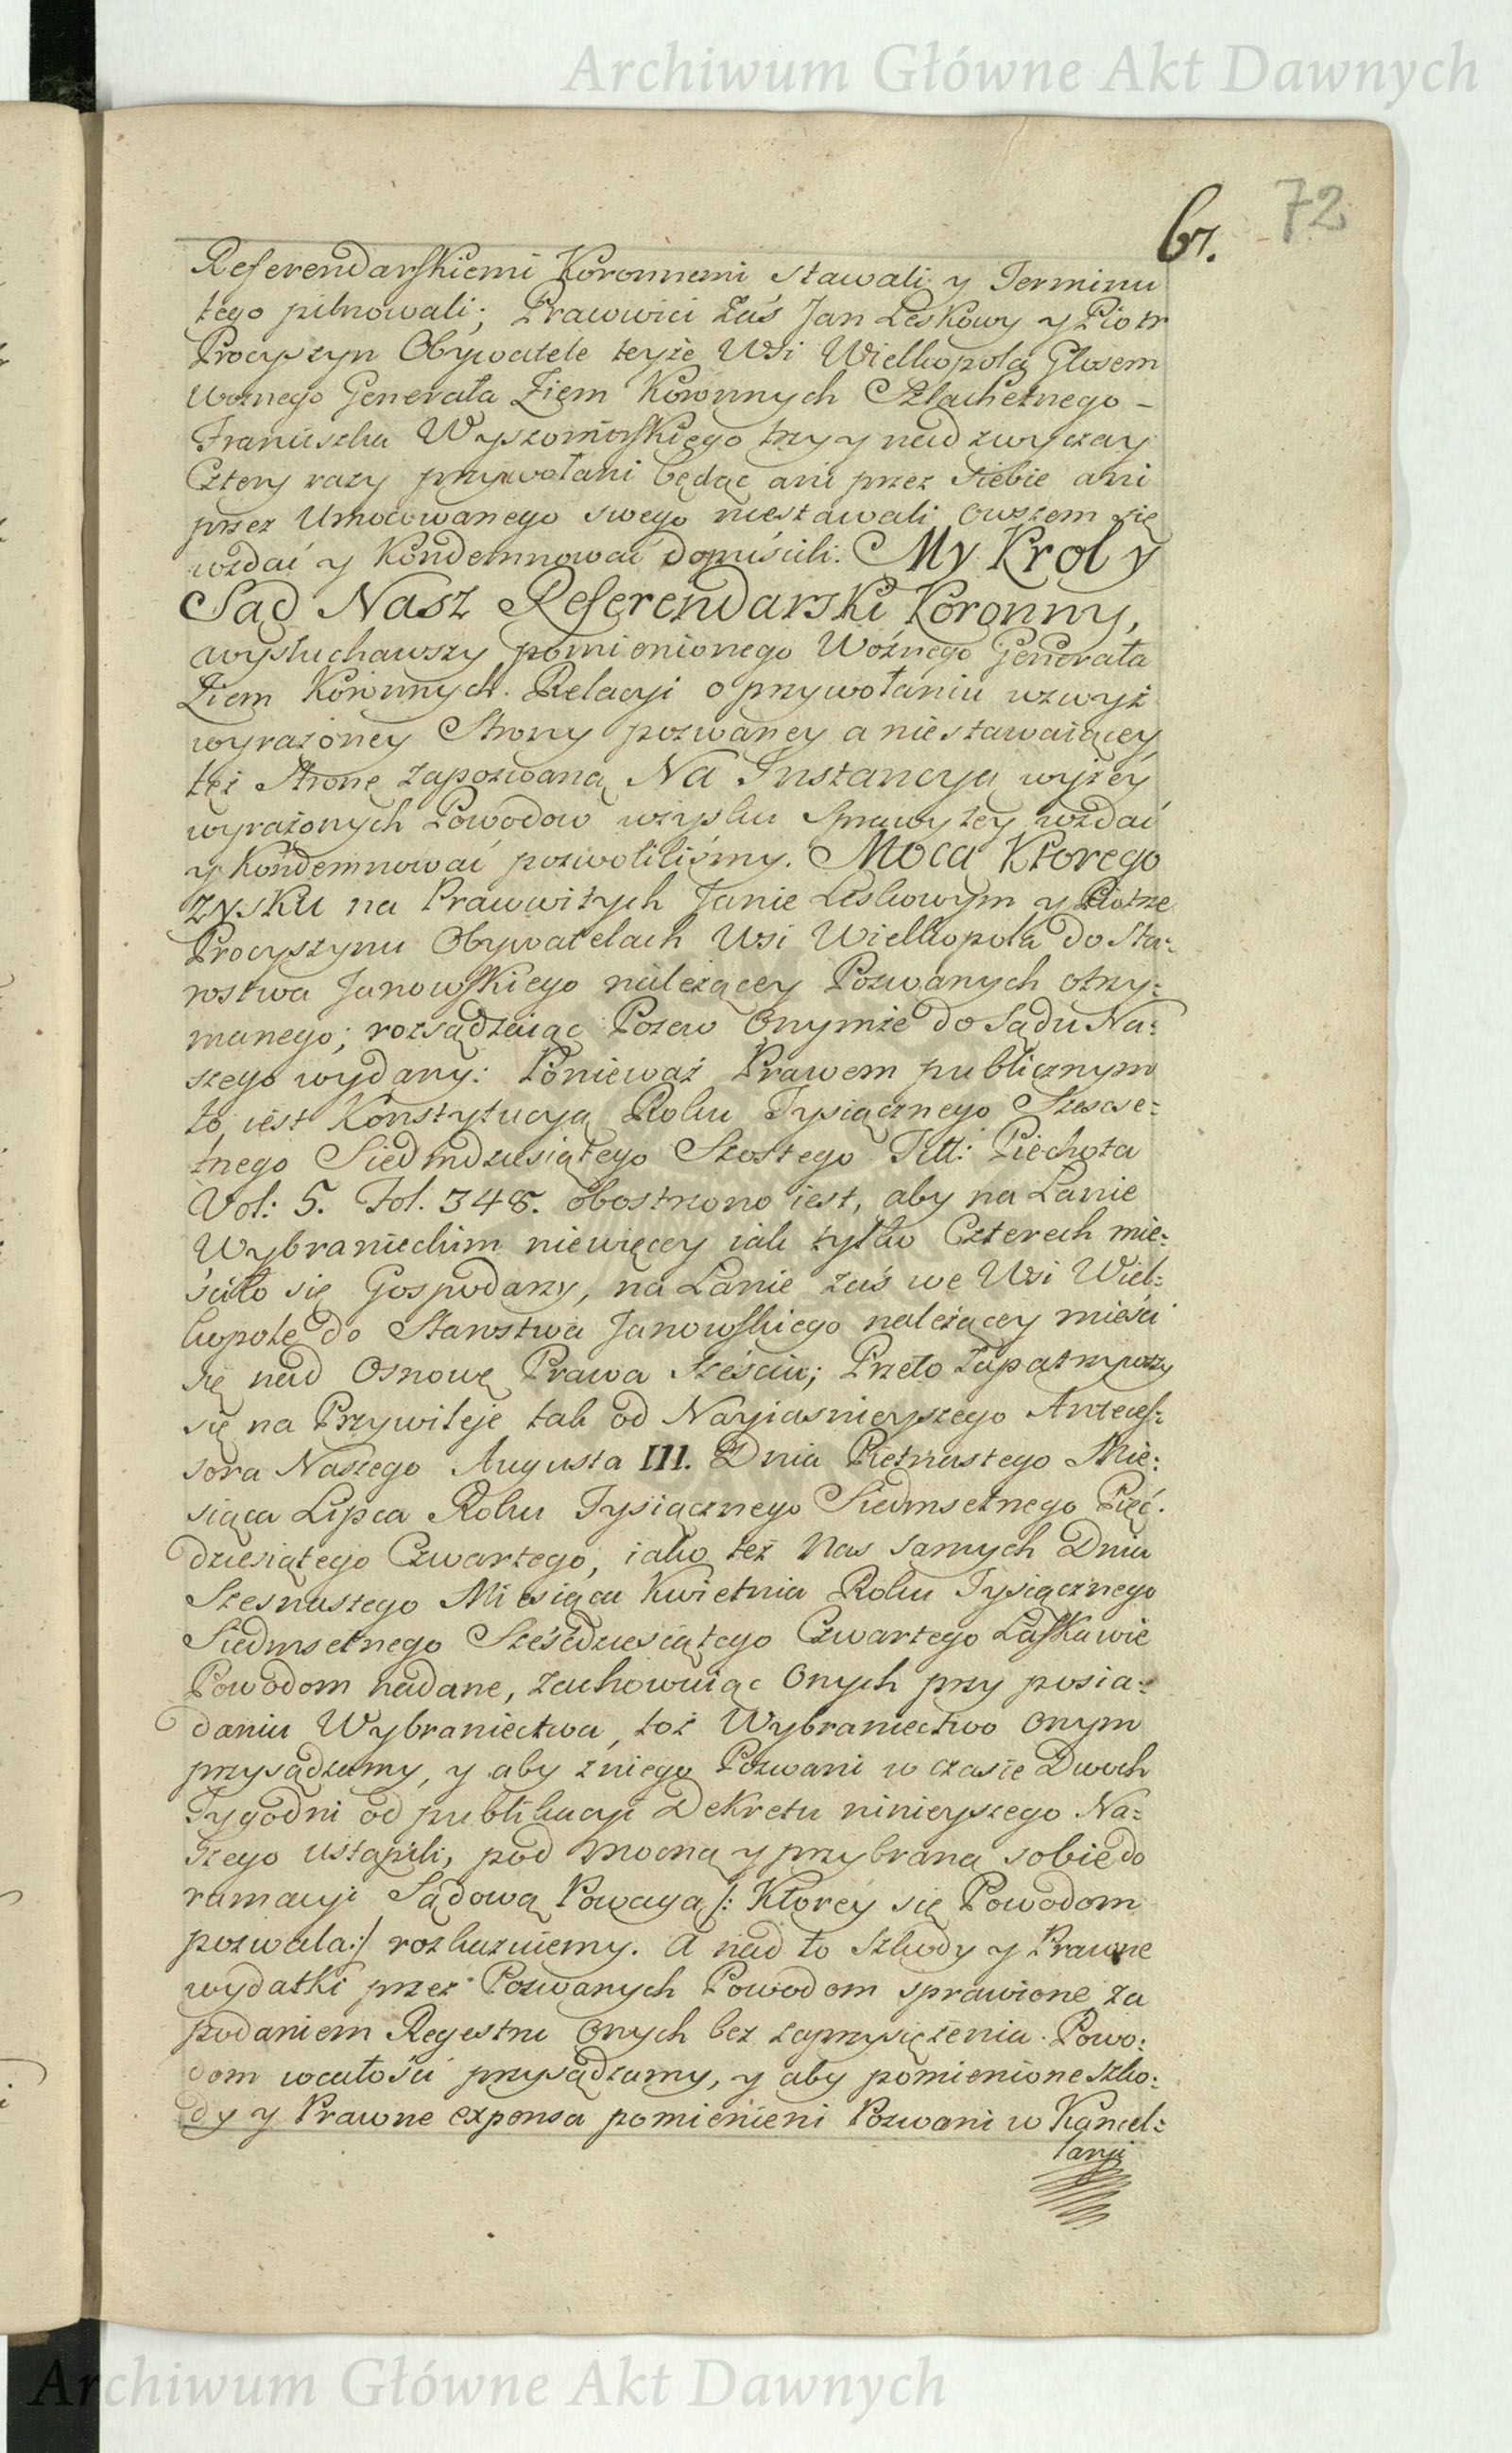 Archiwum Główne Akt Dawnych
67. 72
Referendarskiemi Koronnemi stawali y Terminu
tego pilnowali; Prawwici Zaś Jan Leskowy y Piotr
Procyszyn Obywatele teyże Wsi Wielkopola Głosem
Woznego Generała Ziem Koronnych Szlachetnego –
Franciszka Wyszomirskiego trzy y nad zwyczay
Cztery razy przywołani będąc ani przez siebie ani
przez Umocowanego swego niestawali owszem się
wzdać y Kondemnować dopuścili. My Krol y
Sąd Nasz Referendarski Koronny,
wysłuchawszy pomienionego Woźnego Generała
Ziem Koronnych Relacyi o przywołaniu wzwyż
wyrażoney Strony pozwaney a niestawaiącey
też Stronę zapozwaną Na Instancyą wyżey
wyrażonych Powodow wzysku Sprawy tey wzdać
y Kondemnować pozwoliliśmy. Mocą Ktorego
zysku na Prawwitych Janie Leskowym y Piotrze
Procyszynu Obywatelach Wsi Wielkopola do Sta:
rostwa Janowskiego należącey Pozwanych otrzy:
manego; rozsądzaiąc Pozew Onymże do Sądu Na:
szego wydany: Ponieważ Prawem publicznym
to iest Konstytucyą Roku Tysiącznego Szescse:
tnego Siedmdziesiątego Szostego Titt: Piechota
Vol: 5. Fol. 348. obostrzono iest, aby na Łanie
Wybranieckim niewięcey iak tylko Czterech mie:
ściło się Gospodarzy, na Łanie zaś we Wsi Wiel:
kopole do Starostwa Janowskiego należącey mieści
się nad Osnowę Prawa sześciu; Przeto zapatrzywszy
się na Przywileje tak od Nayiasnieyszego Anteces:
sora Naszego Augusta III. Dnia Piętnastego Mie:
siąca Lipca Roku Tysiącznego Siedmsetnego Pięć:
dziesiątego Czwartego, iako też Nas samych Dnia
Szesnastego Miesiąca Kwietnia Roku Tysiącznego
Siedmsetnego Sześćdziesiątego Czwartego Łaskawie
Powodom nadane, zachowuiąc Onych przy posia:
daniu Wybraniectwa, toż Wybraniectwo onym
przysądzamy, y aby zniego Pozwani w czasie Dwuch
Tygodni od publikacyi Dekretu ninieyszego Na:
szego ustąpili, pod mocną y przybraną sobie do
rumacyi Sądową Powagą /: Ktorey się Powodom
pozwala:/ rozkazuiemy. A nad to Szkody y Prawne
wydatki przez Pozwanych Powodom sprawione za
podaniem Regestru Onych bez zaprzysiężenia Powo:
dom wcałości przysądzamy, y aby pomienione szko:
dy y Prawne expensa pomienieni Pozwani w Kancel:
laryi
Archiwum Główne Akt Dawnych